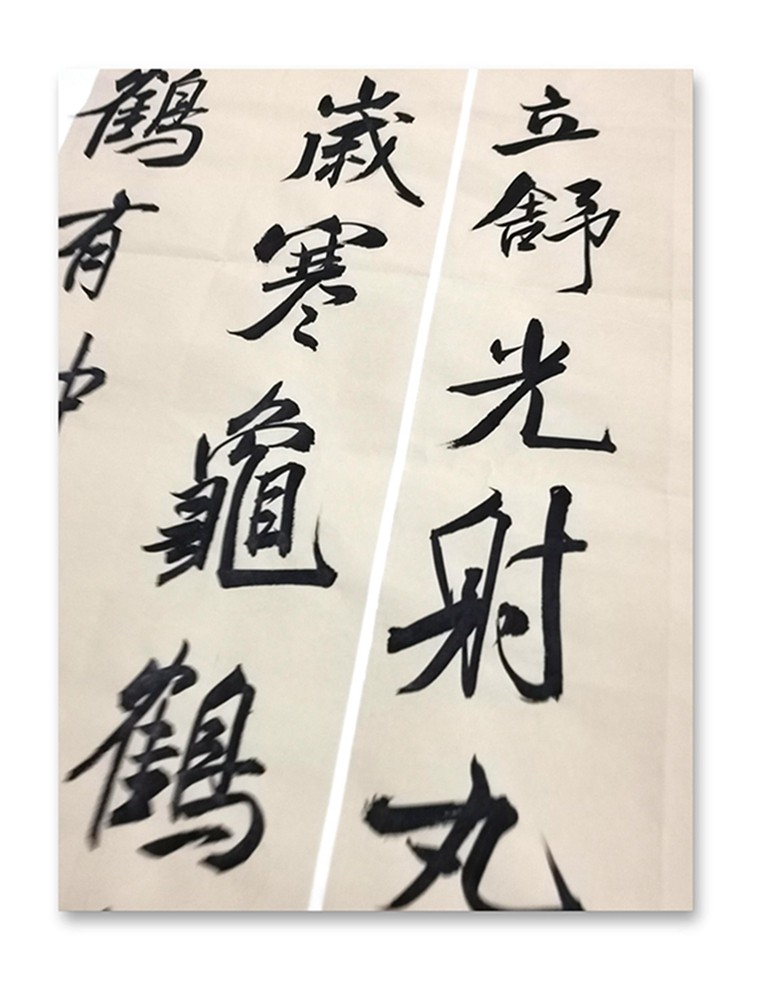 立舒光射丸
歲寒龜鶴
鶴有中